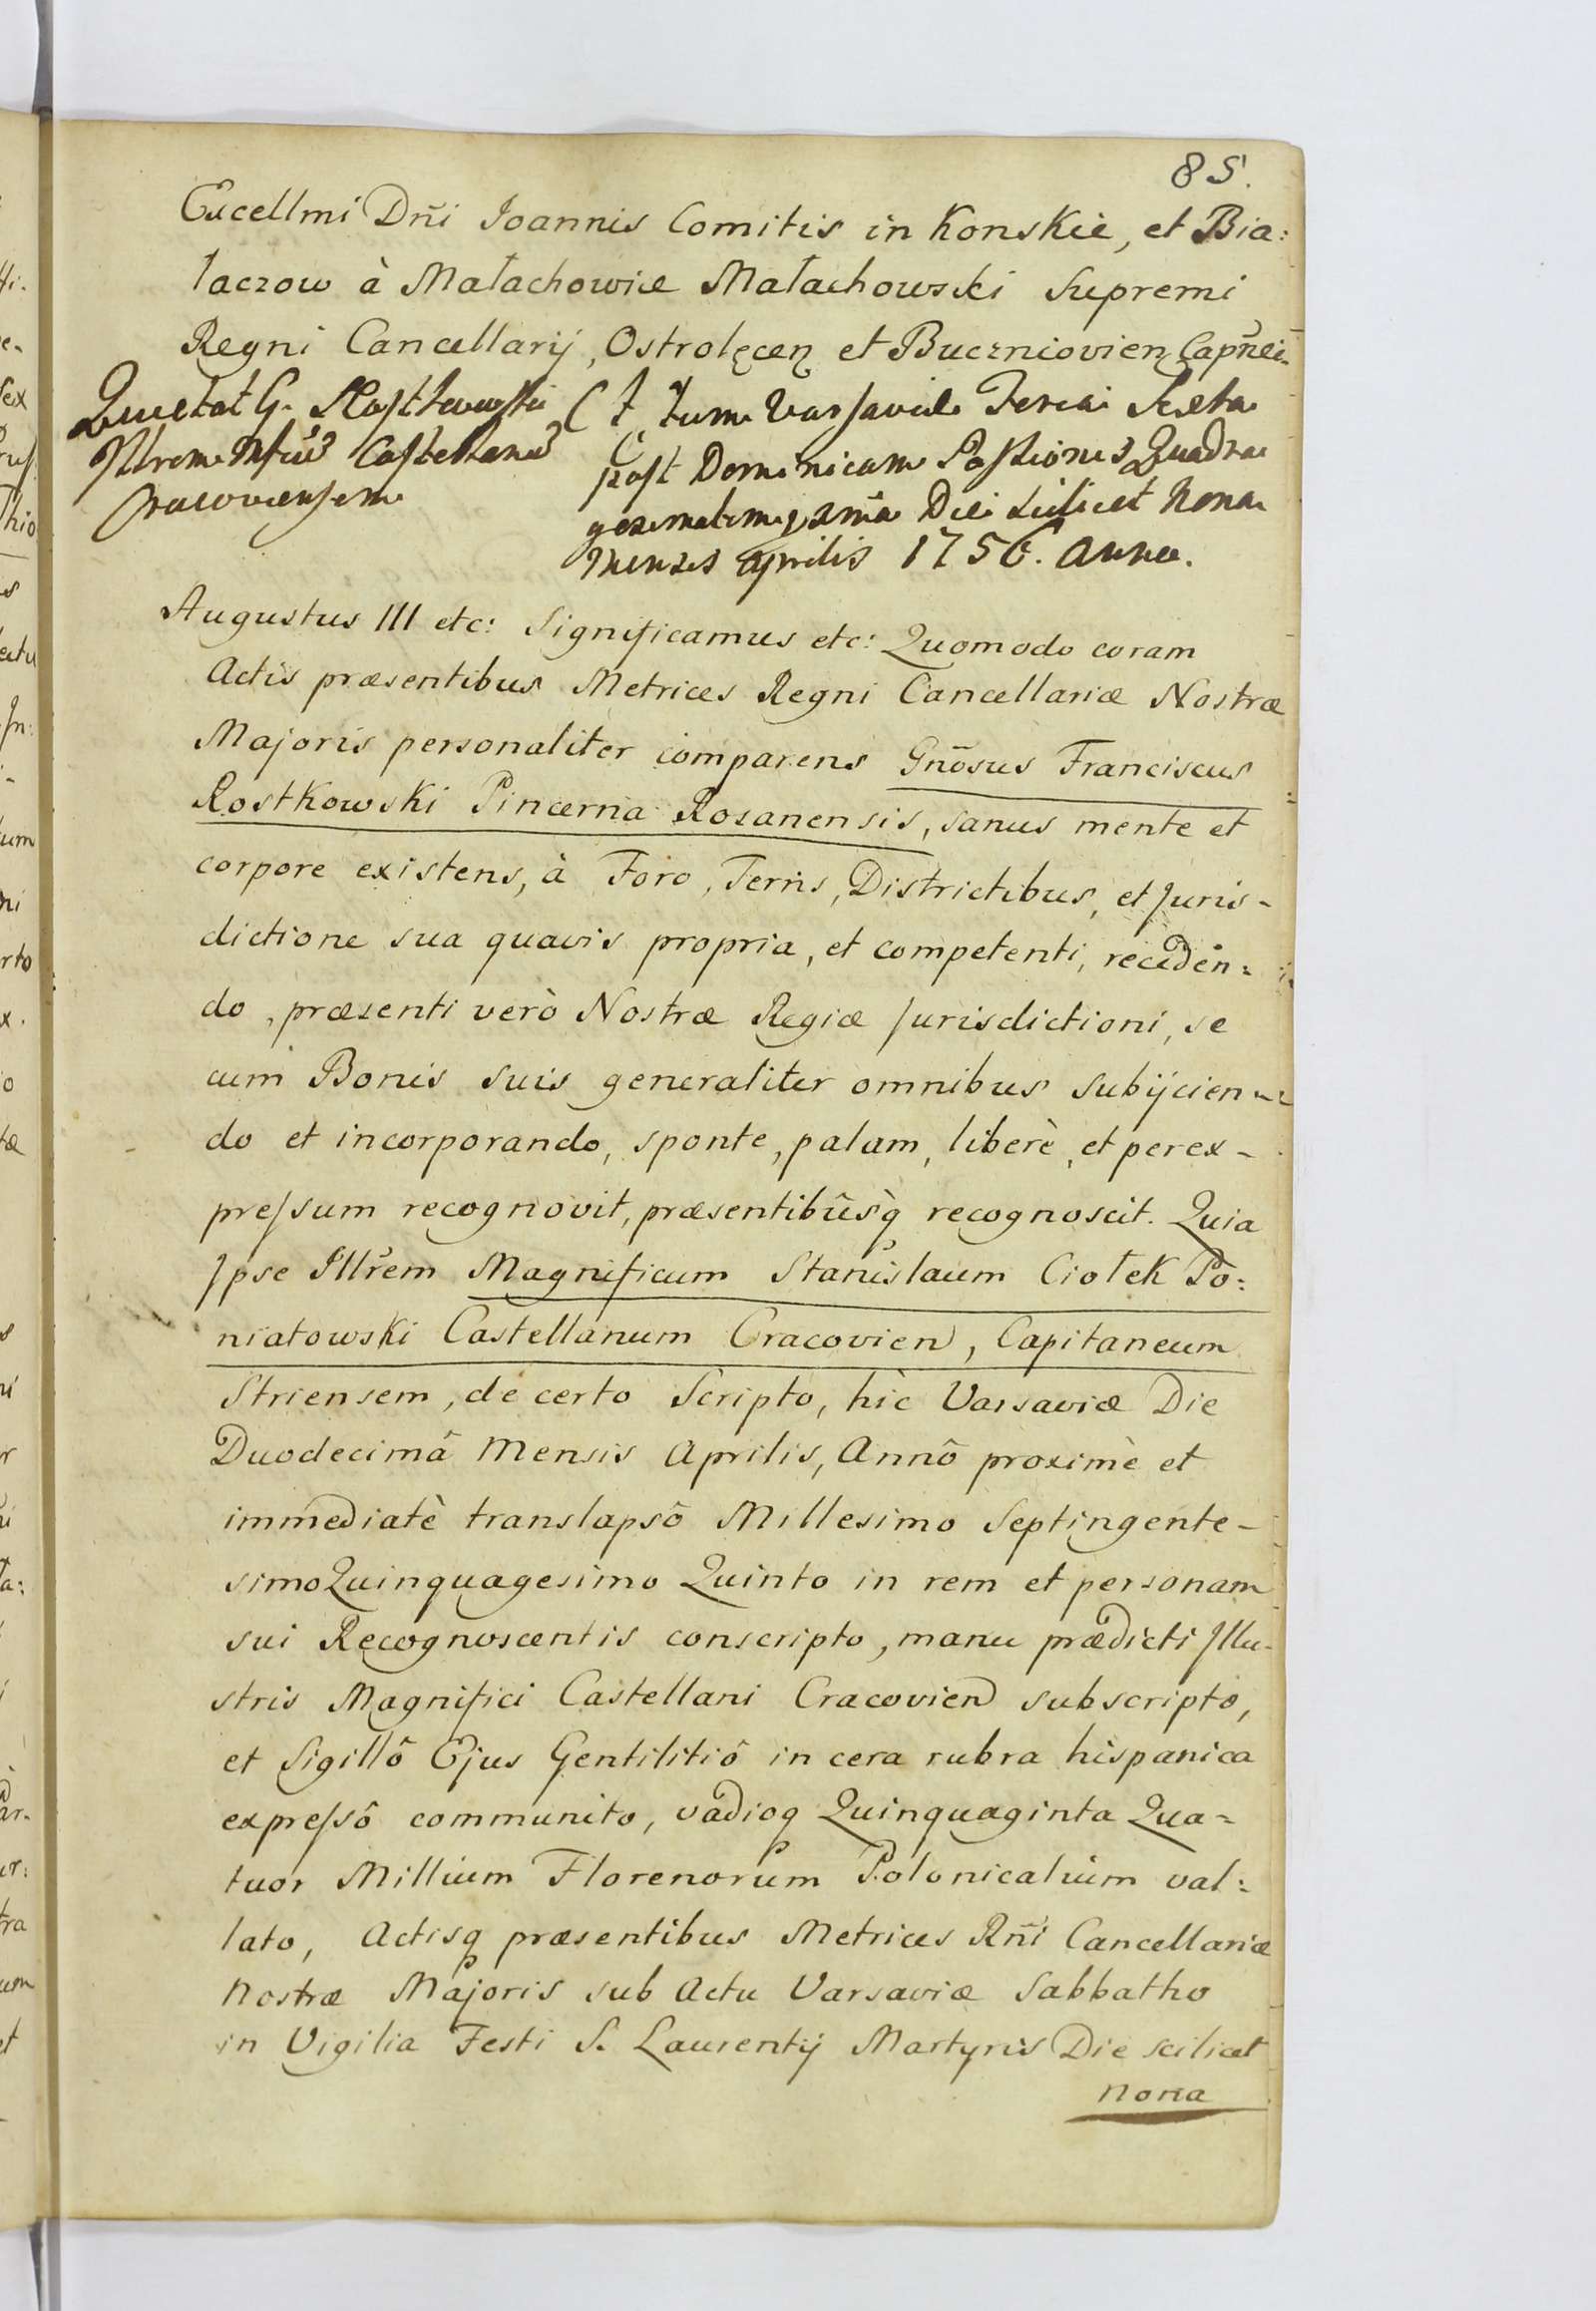 85.
Excellmi Dñi Joannis Comitis in Konskie, et Bia:
łaczow à Małachowice Małachowski Supremi
Regni Cancellarij, Ostrolęcen et Buczniovien Capñei
Quietat G. Rostkowski
Illrem Mfcū Castellanū
Cracoviensem
Actum Varsaviæ Feria Sexta
post Dominicam Passionis Quadra
gesimalem Die scilicet Nona
Mensis Aprilis 1756. Anno.
Augustus III etc: Significamus etc: Quomodo coram
Actis præsentibus Metrices Regni Cancellariæ Nostræ
Majoris personaliter comparens Gñosus Franciscus
Rostkowski Pincerna Rozanensis, sanus mente et
corpore existens, à Foro, Terris, Districtibus, et Juris-
dictione sua quavis propria, et competenti, receden=
do, præsenti verò Nostræ Regiæ Jurisdictioni, se
cum Bonis suis generaliter omnibus subijcien=
do et incorporando, sponte, palam, liberè, et perex-
preſsum recognovit, præsentibûsq̀ recognoscit. Quia
Ipse Illrem Magnificum Stanislaum Ciołek Po:
niatowski Castellanum Cracovien, Capitaneum
Striensem, de certo Scripto, hîc Varsaviæ Die
Duodecimâ Mensis Aprilis, Annô proximè et
immediatè translapsô Millesimo Septingente-
simo Quinquagesimo Quinto in rem et personam
sui Recognoscentis conscripto, manu prædicti Illu-
stris Magnifici Castellani Cracovien subscripto,
et Sigillô Ejus Gentilitiô in cera rubra hispanica
expreſsô communito, vadioq Quinquaginta Qua=
tuor Millium Florenorum Polonicalium val:
lato, Actisq præsentibus Metrices Rñi Cancellariæ
Nostræ Majoris sub Actu Varsaviæ Sabbatho
in Vigilia Festi S. Laurentij Martyris Die scilicet
nona